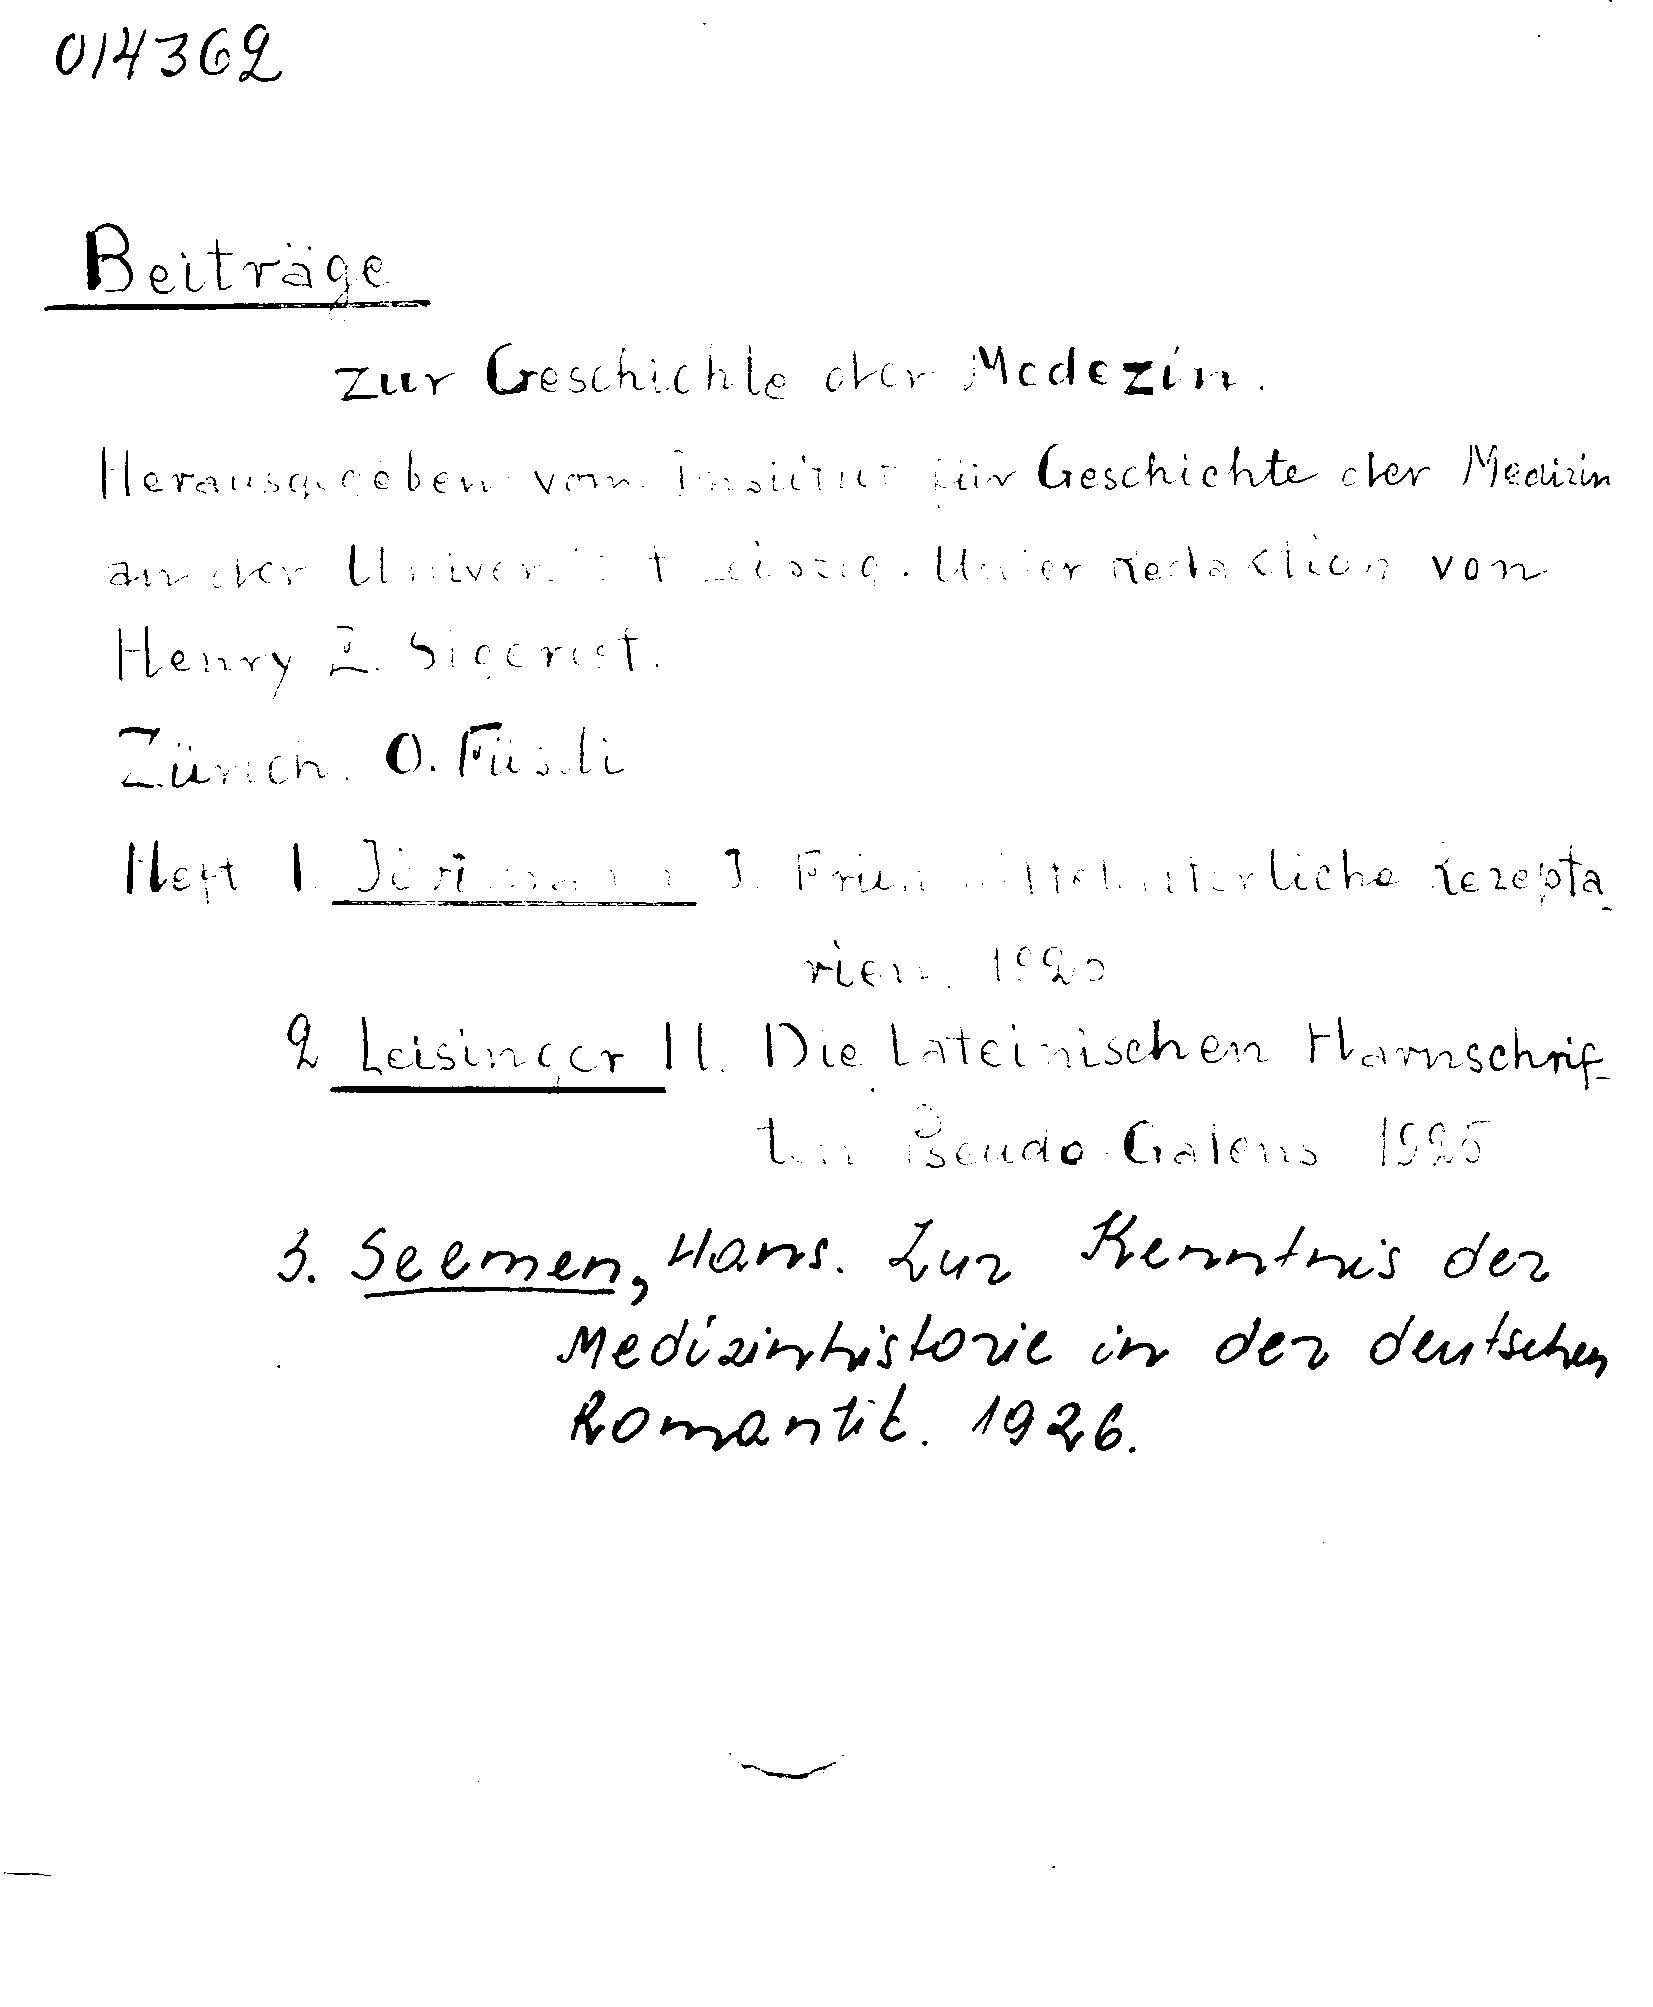 014362
Beiträge
zur Geschichte der Medezin.
Herausgegeben vom Institut für Geschichte der Medizin
an der Universität Leipzig. Unter Redaktion von
Henry E. Sigerist.
Zürich. O. Füssli
Heft 1. Jörimann J. Frühmittelalterliche Rezepta-
rien. 1925
2 Leisinger H. Die lateinischen Harnschrif-
ten Pseudo-Galens 1925
3. Seemen, Hans. Zur Kenntnis der
Medizinhistorie in der deutschen
Romantik. 1926.